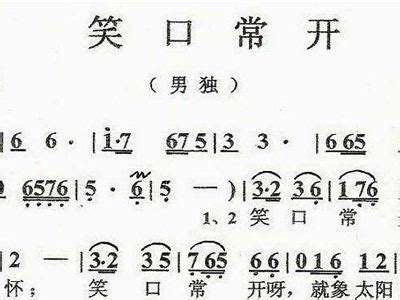 笑口常开
（男独）
6 6·|1·7 675|3 3·|665
6576|5·6|5 —)|3·2 36|176
1、2 笑 口 常
2 —|3·2 35|765 66|016 12
怀； 笑 口 常 开呀，就象太阳